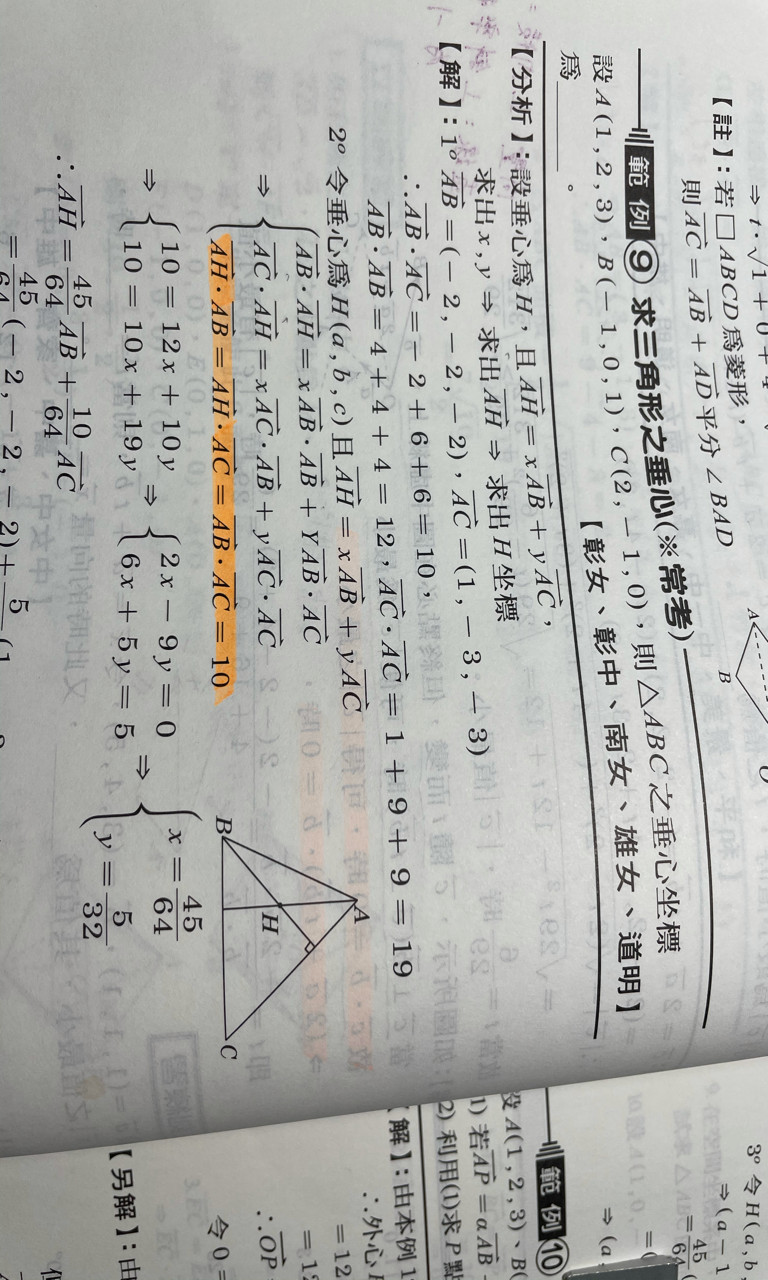 ⇒ t・√1 + 0 + 4
【註】：若□ABCD 爲菱形，
則 AC = AB + AD 平分 ∠BAD
A
B
範例 ⑨ 求三角形之垂心(※常考)
設 A(1, 2, 3)，B(−1, 0, 1)，C(2, −1, 0)，則 △ABC 之垂心坐標
爲＿＿＿。
【彰女、彰中、南女、雄女、道明】
【分析】：設垂心爲 H，且 AH = xAB + yAC，
求出 x, y ⇒ 求出 AH ⇒ 求出 H 坐標
【解】：1° AB = (−2, −2, −2)，AC = (1, −3, −3)
∴AB・AC = −2 + 6 + 6 = 10，
AB・AB = 4 + 4 + 4 = 12，AC・AC = 1 + 9 + 9 = 19
2° 令垂心爲 H(a, b, c) 且 AH = xAB + yAC
⇒ { AB・AH = xAB・AB + YAB・AC
AC・AH = xAC・AB + yAC・AC
AH・AB = AH・AC = AB・AC = 10
⇒ { 10 = 12x + 10y
10 = 10x + 19y
⇒ { 2x − 9y = 0
6x + 5y = 5
⇒ { x = 45/64
y = 5/32
A
H
B
C
∴AH = 45/64 AB + 10/64 AC
= 45/64 (−2, −2, −2) + 5
3° 令 H(a, b,
⇒ (a − 1
= 45/64
⇒ (a,
範例 ⑩
設 A(1, 2, 3)、B(
1) 若 AP = αAB
2) 利用(1)求 P 點
解】：由本例 1
∴外心
= 12
= 12
∴OP
令 0 =
【另解】：由